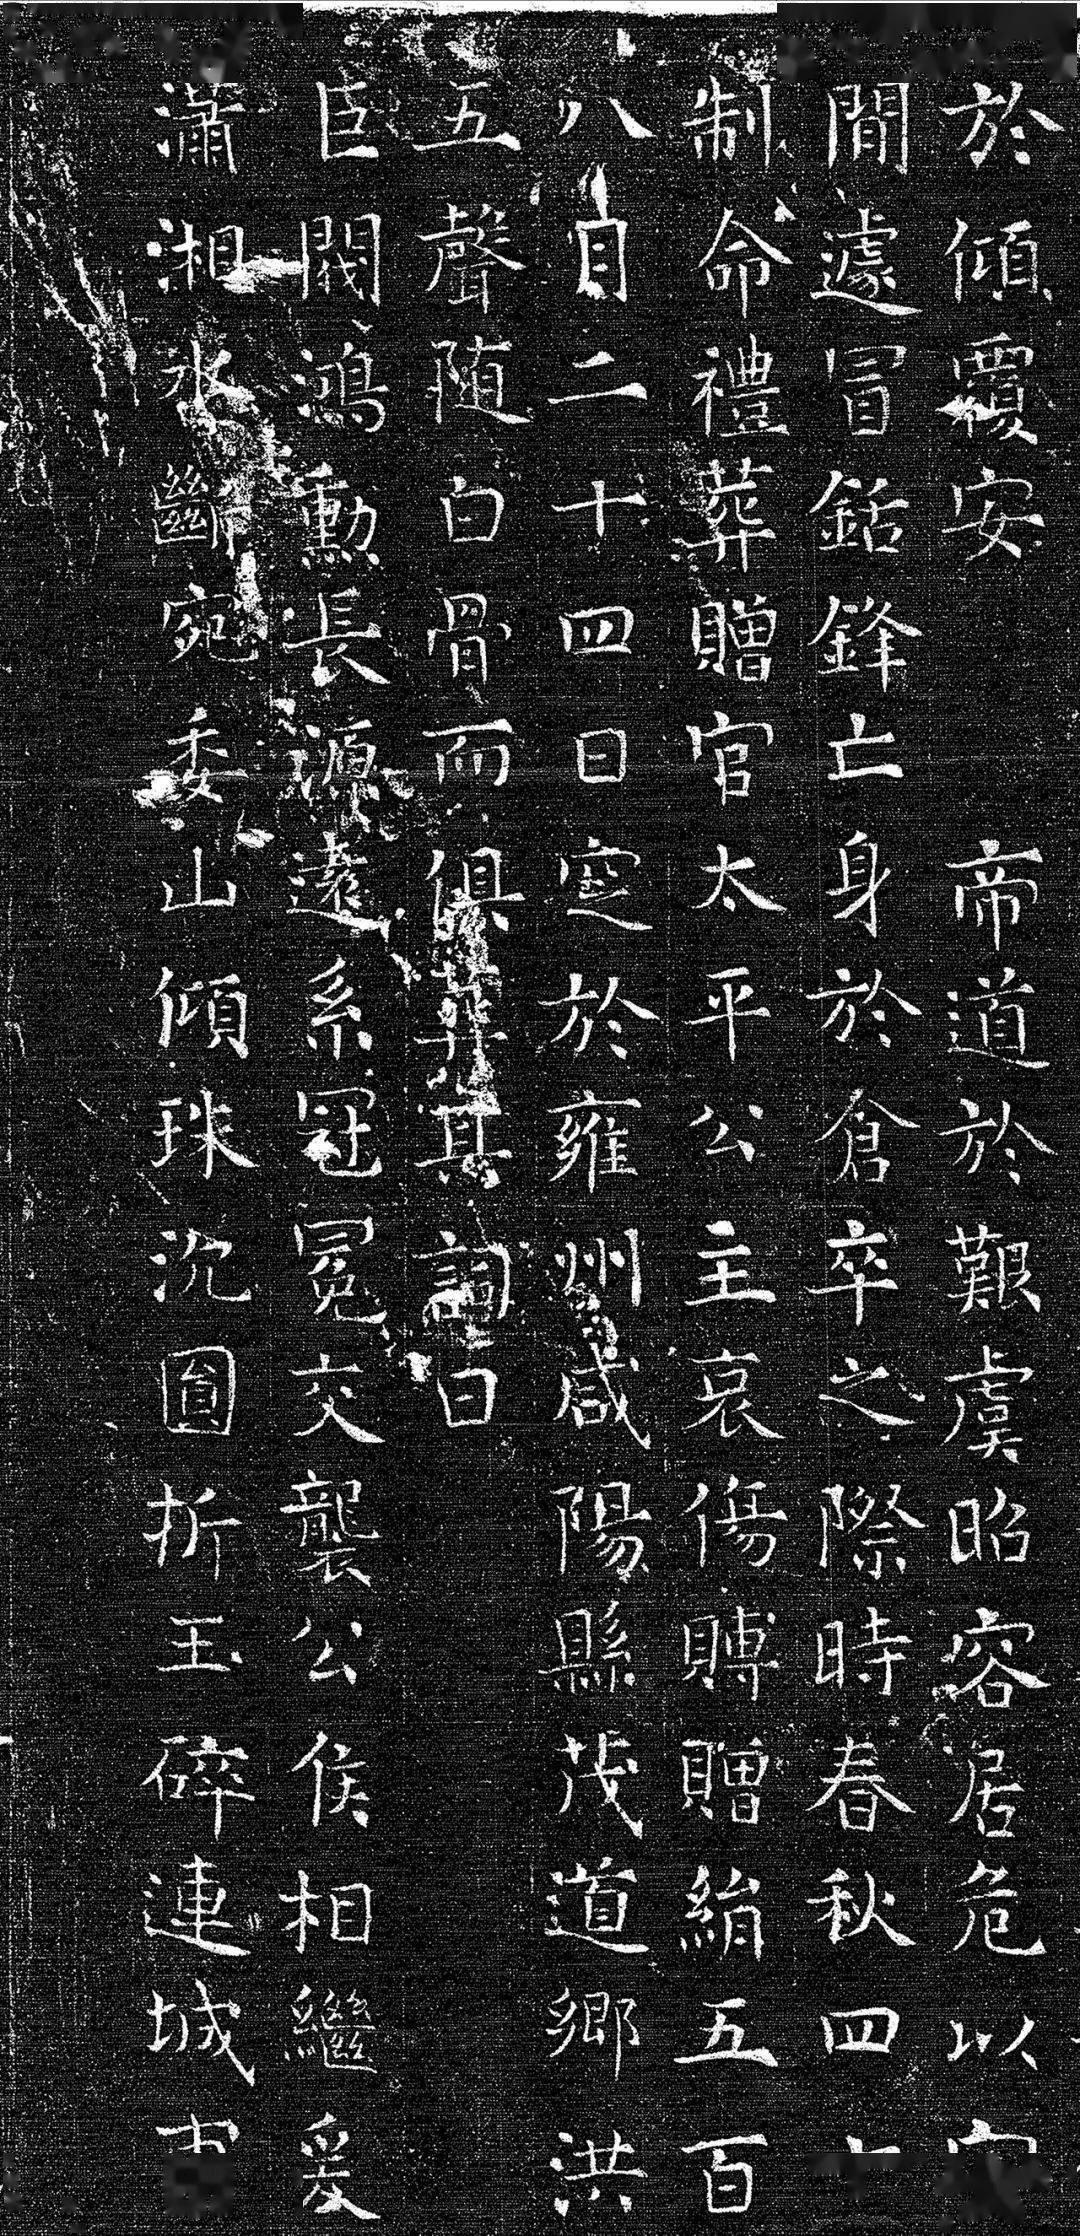 於傾覆安　帝道於艱虞昭容居危以
間遽冒銛鋒亡身於倉卒之際時春秋四
制命禮葬贈官太平公主哀傷賻贈絹五百
八月二十四日窆於雍州咸陽縣茂道鄉洪
五聲随白骨而俱葬其詞曰
巨閥鴻勳長源遠系冠冕交襲公侯相繼爰
瀟湘水斷宛委山傾珠沉圓折玉碎連城